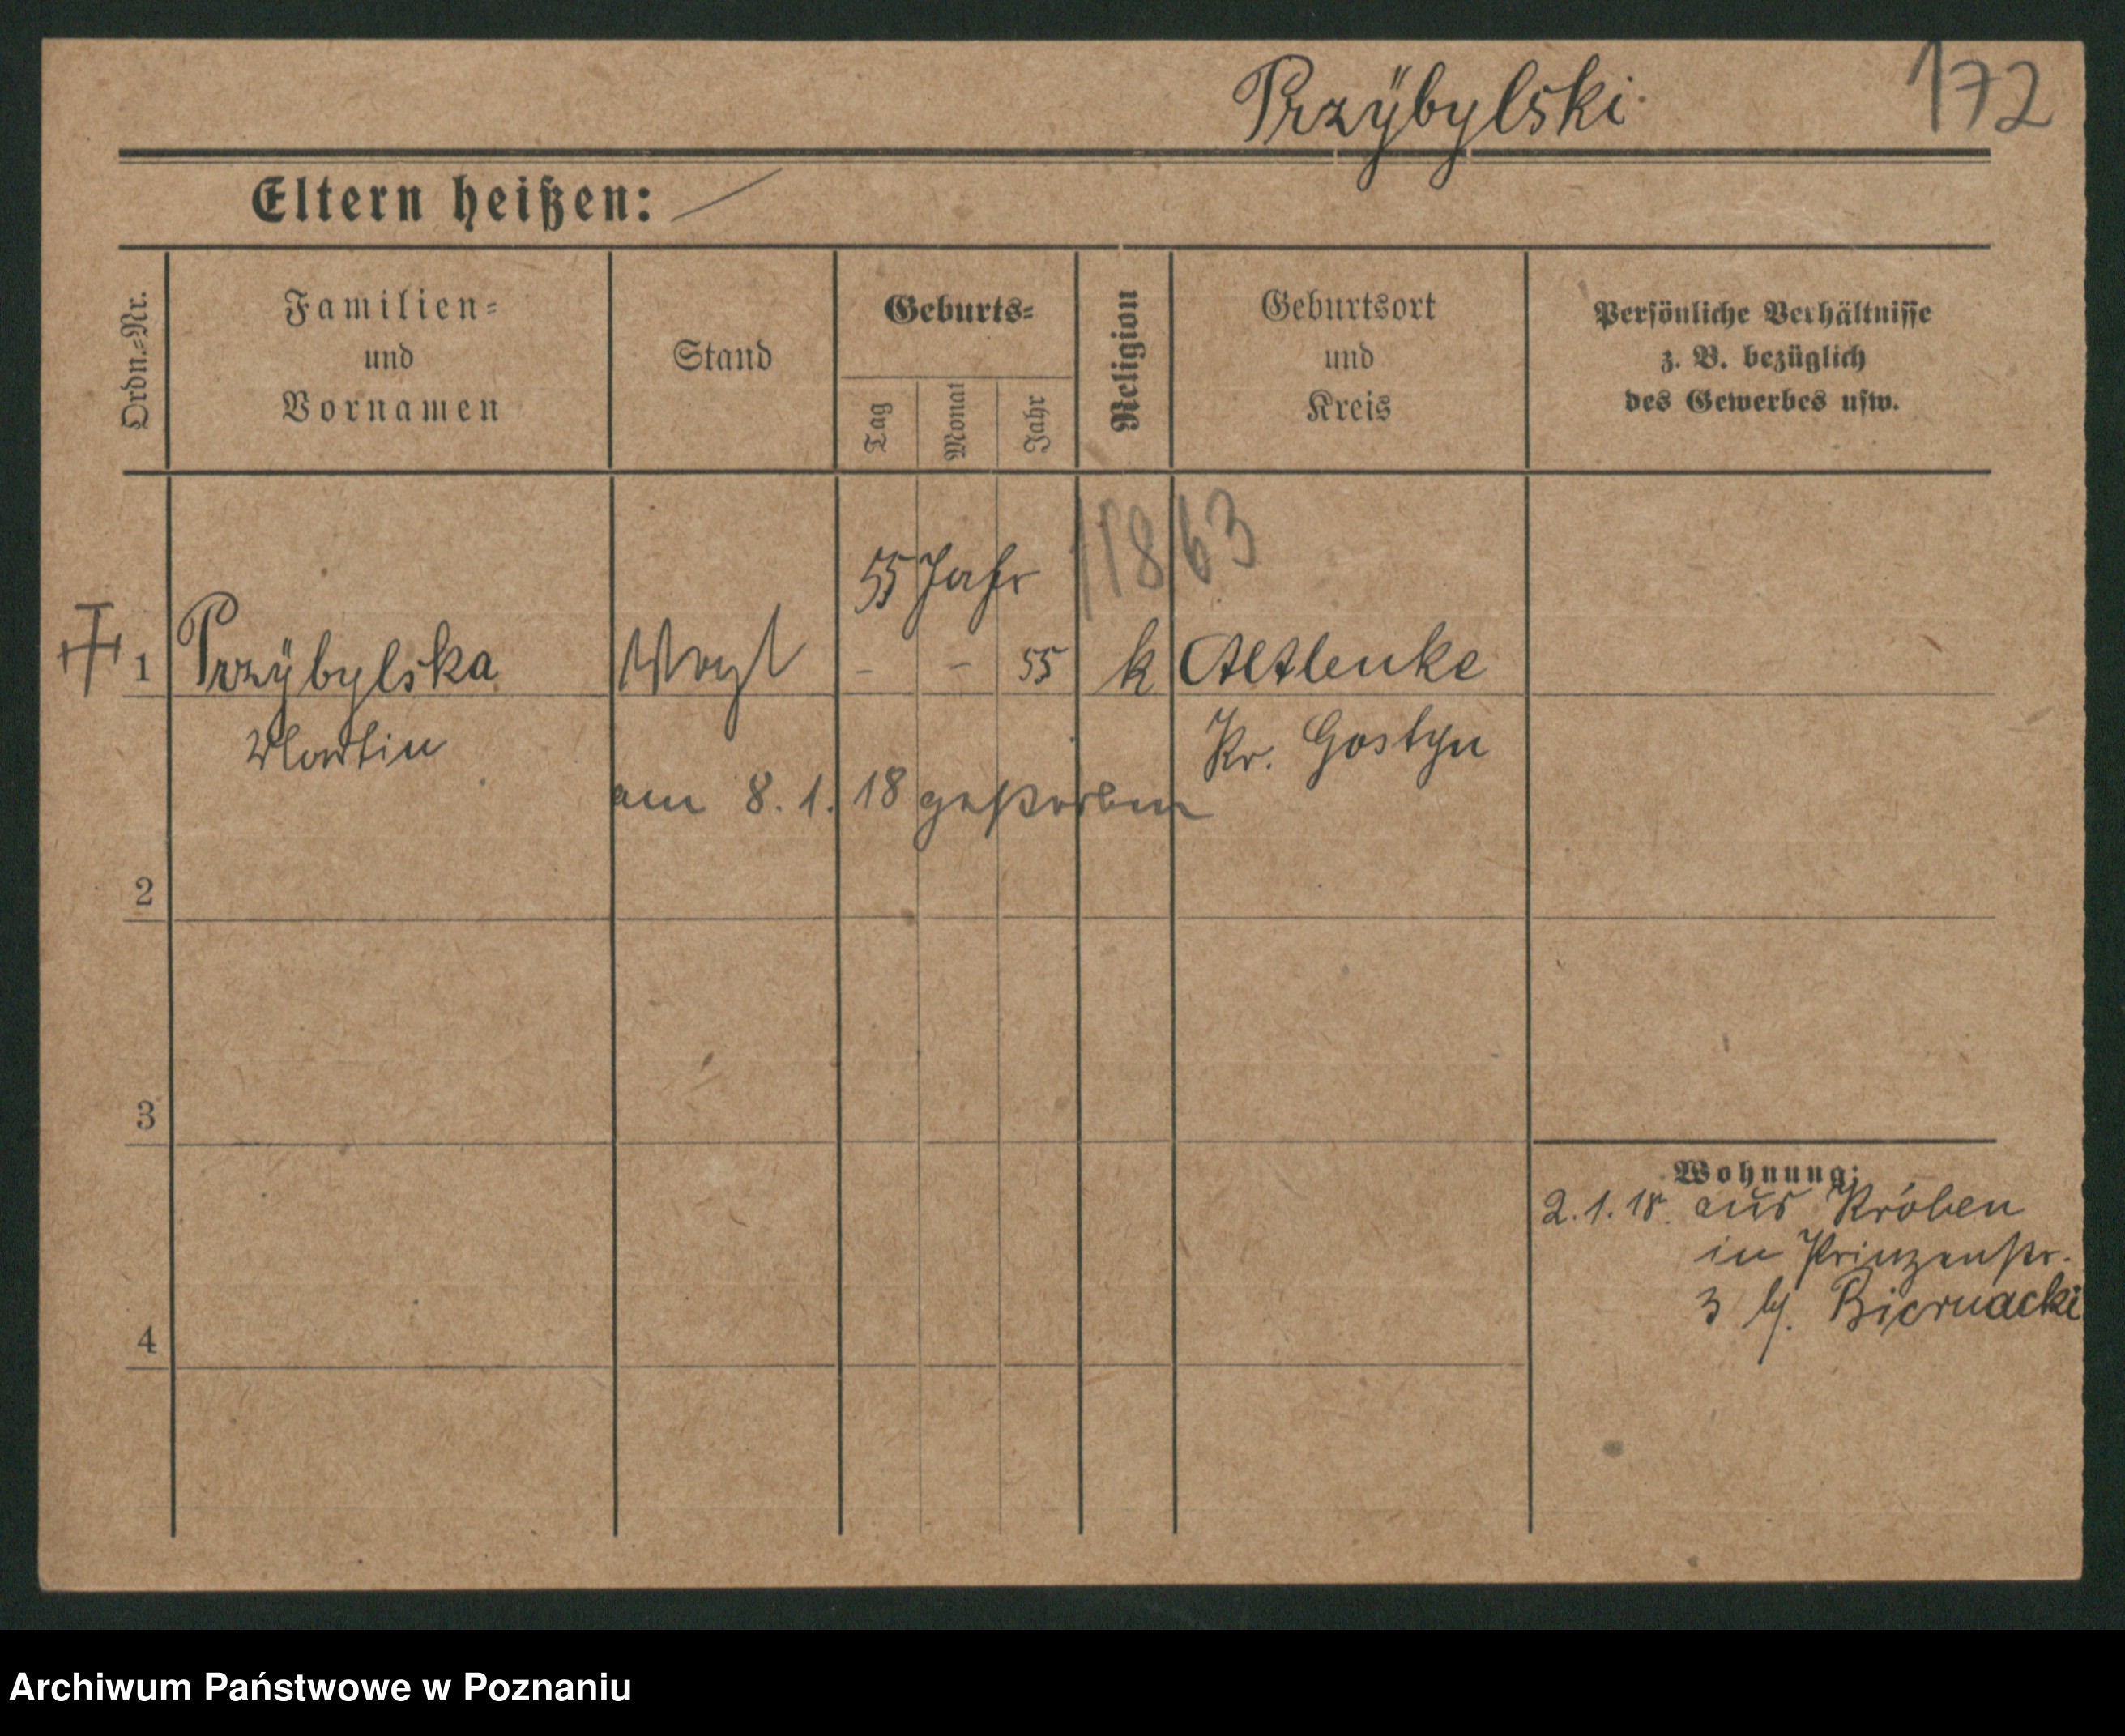 Przÿbylski
172
Eltern heißen:
Ordn.-Nr.
Familien-
und
Vornamen
Stand
Geburts-
Tag
Monat
Jahr
Religion
Geburtsort
und
Kreis
Persönliche Verhältnisse
z. B. bezüglich
des Gewerbes usw.
1863
55 Jahr
1 Przÿbylska Vogt - - 55 k Altlenke
Martin
Kr. Gostyn
am 8. 1. 18 gestorben
2
3
Wohnung:
2. 1. 18. aus Kröben
in Prinzenstr.
3 b/. Biernacki
4
Archiwum Państwowe w Poznaniu